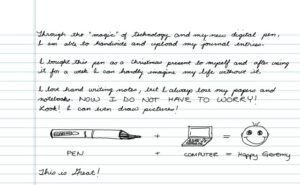 Through the "magic" of technology and my new digital pen,
I am able to handwrite and upload my journal entries.
I bought this pen as a Christmas present to myself and after using
it for a week I can hardly imagine my life without it.
I love hand writing notes, but I always lose my pages and
notebooks. NOW I DO NOT HAVE TO WORRY!
Look! I can even draw pictures!
+ =
PEN + COMPUTER = Happy Geremy
This is Great!